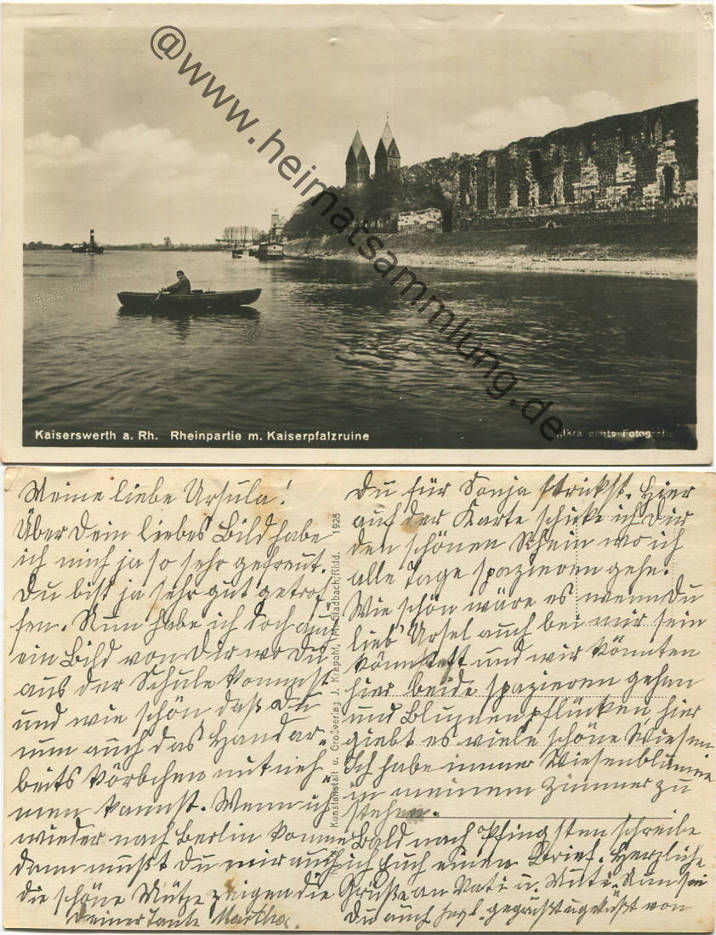 @www.heimatsammlung.de
Kaiserswerth a. Rh. Rheinpartie m. Kaiserpfalzruine
echte Fotografie
Meine liebe Ursula!
Über Dein liebes Bild habe
ich mich ja so sehr gefreut.
Du bist ja sehr gut getrof-
fen. Nun habe ich doch auch
ein Bild von Dir wo Du
aus der Schule kommst
und wie schön daß Du
nun auch das Handar-
beits körbchen mitneh-
men kannst. Wenn ich
wieder nach Berlin komme
dann mußt Du mir auch
die schöne Mütze zeigen die
Du für Sonja strickst. Hier
auf der Karte schicke ich Dir
den schönen Rhein wo ich
alle Tage spazieren gehe.
Wie schön wäre es wenn Du
lieb Ursel auch bei mir sein
könntest und wir könnten
hier beide spazieren gehen
und Blumen pflücken, hier
giebt es viele schöne Wiesen
Ich habe immer Wiesenblumen
in meinem Zimmer zu
stehen.
Bald nach Pfingsten schreibe
ich Euch einen Brief. Herzliche
Grüße an Vati u. Mutti. Nun sei
Du auch herzl. gegrüßt u geküßt von
Deiner Tante Martha.
Kunstanstalt u. Großverlag J. Krapohl, M.Gladbach/Rhld. 1928